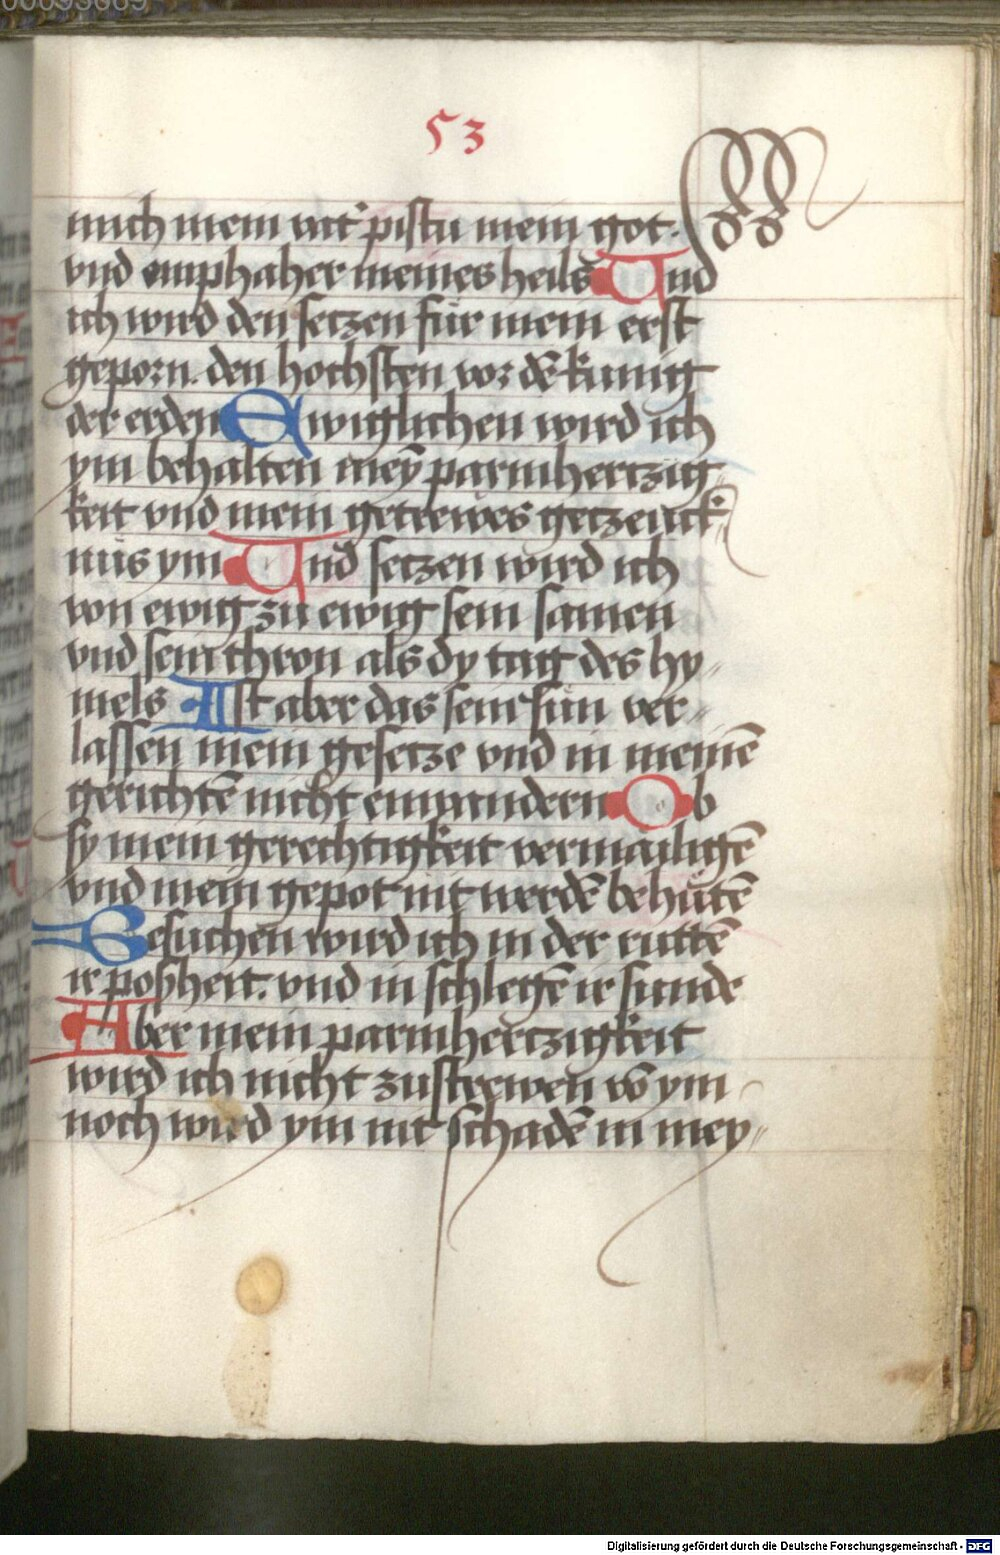 00093669
53
mich mein vat' pistu mein got.
vnd emphaher meines heils Vnd
ich wird den setzen für mein erst
geporn. den hochsten vor dē kunig
der erden Ewiglichen wird ich
ym behalten meȳ parmhertzig
keit vnd mein getrewes getzeuck
nüs ym Vnd setzen wird ich
von ewig zu ewig sein samen
vnd sein thron als dy tag des hy〃
mels Ist aber das sein sün ver〃
lassen mein gesetze vnd in meinē
gerichtē nicht einwandern Ob
sy mein gerechtigkeit vermailigē
vnd mein gepot nit werdē behütē
Besuchen wird ich in der ruttē
ir posheit. vnd in schlegē ir sunde
Aber mein parmhertzigkeit
wird ich nicht zustrewen vō ym
noch wird ym nit schadē in mey〃
Digitalisierung gefördert durch die Deutsche Forschungsgemeinschaft - DFG